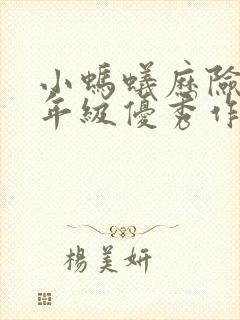 小螞蟻歷險
年級優秀作
楊美妍